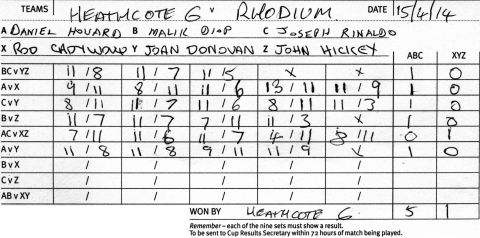 TEAMS HEATHCOTE G V RHODIUM. DATE 15/4/14
A DANIEL HOWARD B MALIK DIOP C JOSEPH RINALDO
X ROD Y JOAN DONOVAN Z JOHN HICKEY
ABC XYZ
BC v YZ 11 / 8 11 / 7 11 / 5 X X 1 0
A v X 9 / 11 8 / 11 11 / 6 13 / 11 11 / 9 1 0
C v Y 8 / 11 11 / 7 11 / 6 8 / 11 11 / 3 1 0
B v Z 11 / 7 11 / 7 7 / 11 11 / 3 X 1 0
AC v XZ 7 / 11 11 / 6 11 / 7 4 / 11 8 / 11 0 1
A v Y 11 / 8 11 / 8 9 / 11 11 / 9 X 1 0
B v X / / / / /
C v Z / / / / /
AB v XY / / / / /
WON BY HEATHCOTE G. 5 1
Remember – each of the nine sets must show a result.
To be sent to Cup Results Secretary within 72 hours of match being played.